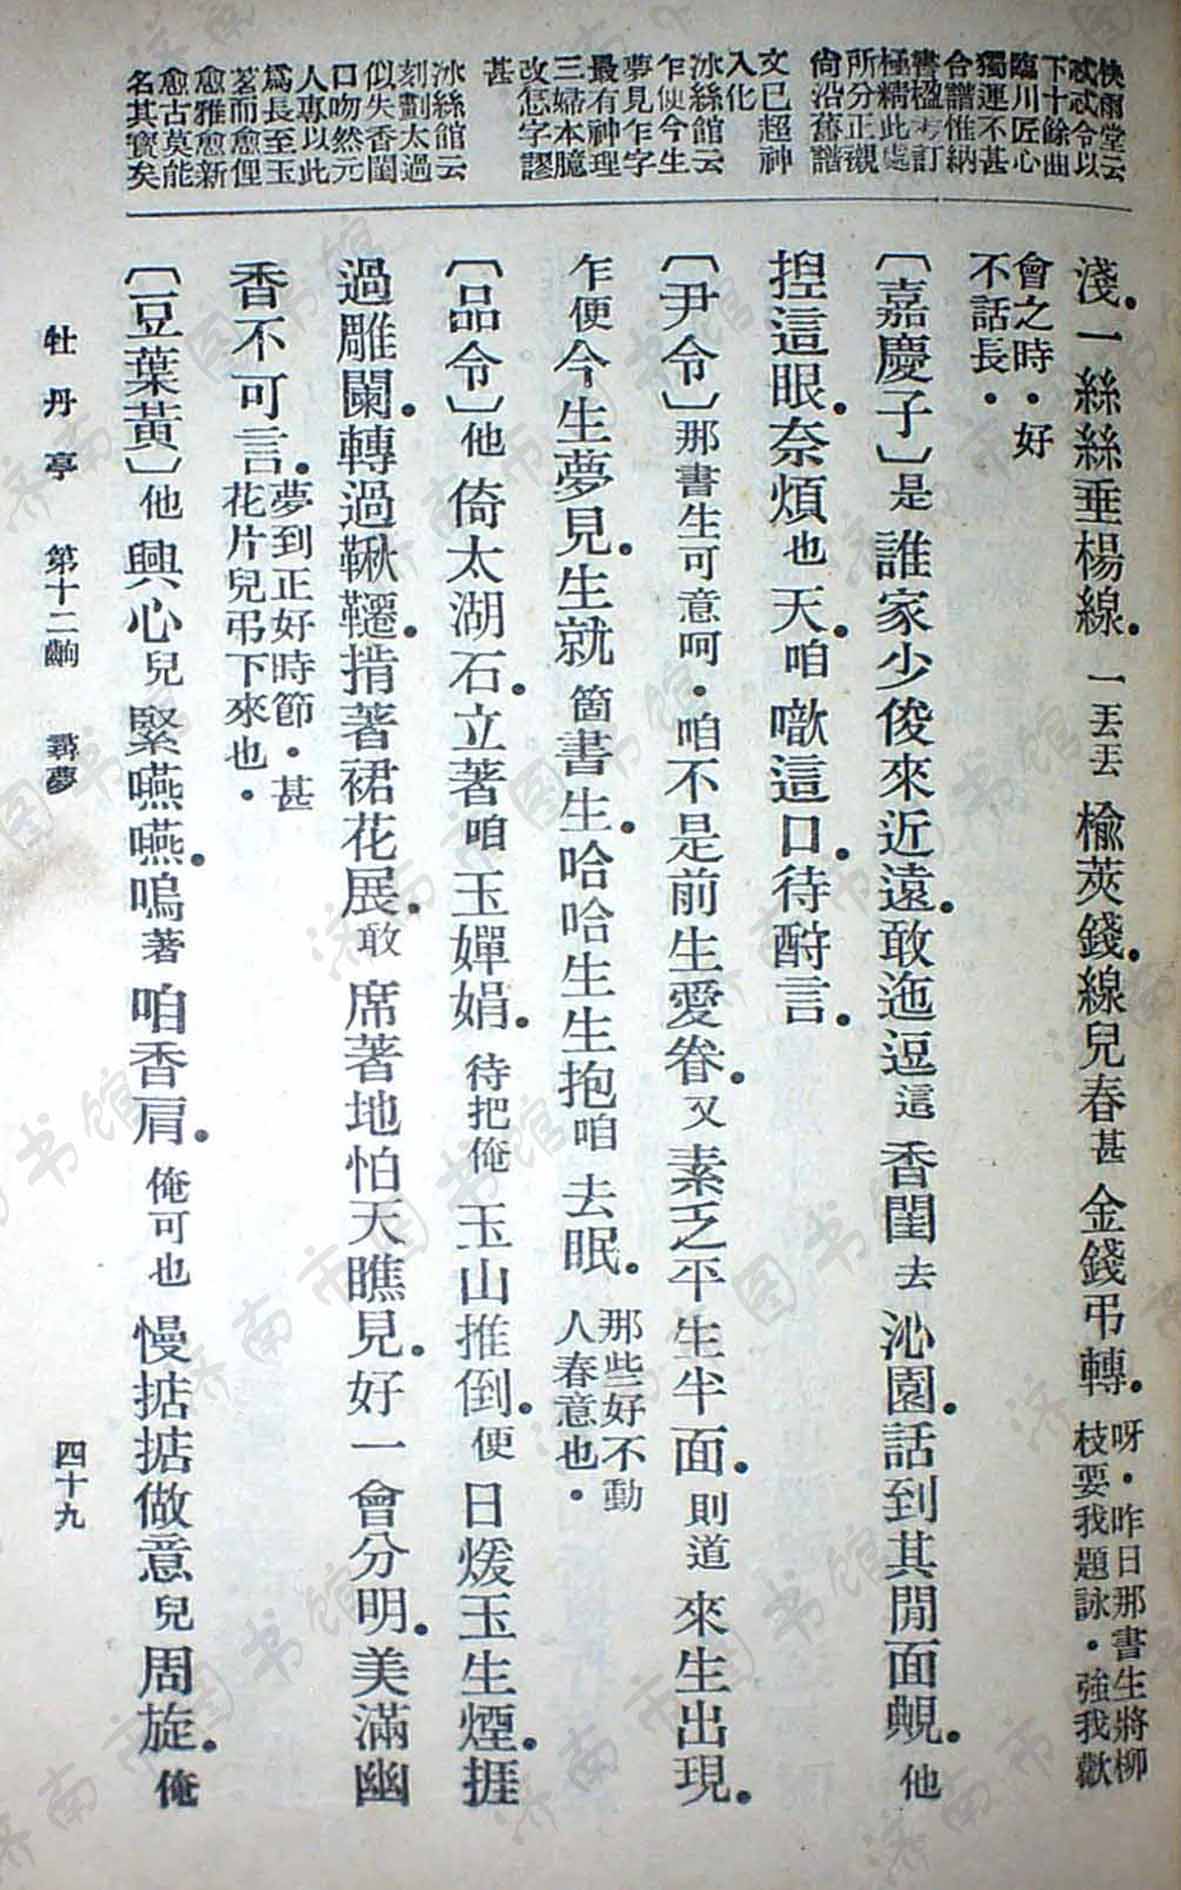 快雨堂云
忒忒令以
下十餘曲
臨川匠心
獨運不甚
合譜惟納
書楹考訂
極精此處
所分正襯
尙沿舊譜
文已超神
入化
冰絲館云
乍便今生
夢見乍字
最有神理
三婦本臆
改怎字謬
甚
冰絲館云
刻劃太過
似失香閨
口吻然元
人專以此
爲長至玉
茗而愈俚
愈雅愈新
愈古莫能
名其寶矣
淺。一絲絲垂楊線。一丟丟榆莢錢。線兒春甚金錢弔轉。呀。昨日那書生將柳枝要我題詠。強我歡
會之時。好不話長。
〔嘉慶子〕是誰家少俊來近遠。敢迤逗這香閨去沁園。話到其閒面靦。他
捏這眼。奈煩也天。咱噷這口。待酧言。
〔尹令〕那書生可意呵。咱不是前生愛眷。又素乏平生半面。則道來生出現。
乍便今生夢見。生就箇書生。哈哈生生抱咱去眠。那些好不動人春意也。
〔品令〕他倚太湖石。立著咱玉嬋娟。待把俺玉山推倒。便日煖玉生煙。捱
過雕闌。轉過鞦韆。掯著裙花展。敢席著地怕天瞧見。好一會分明。美滿幽
香不可言。夢到正好時節。甚花片兒弔下來也。
〔豆葉黃〕他興心兒緊嚥嚥。嗚著咱香肩。俺可也慢掂掂做意兒周旋。俺
牡丹亭 第十二齣 尋夢 四十九
济南市图书馆